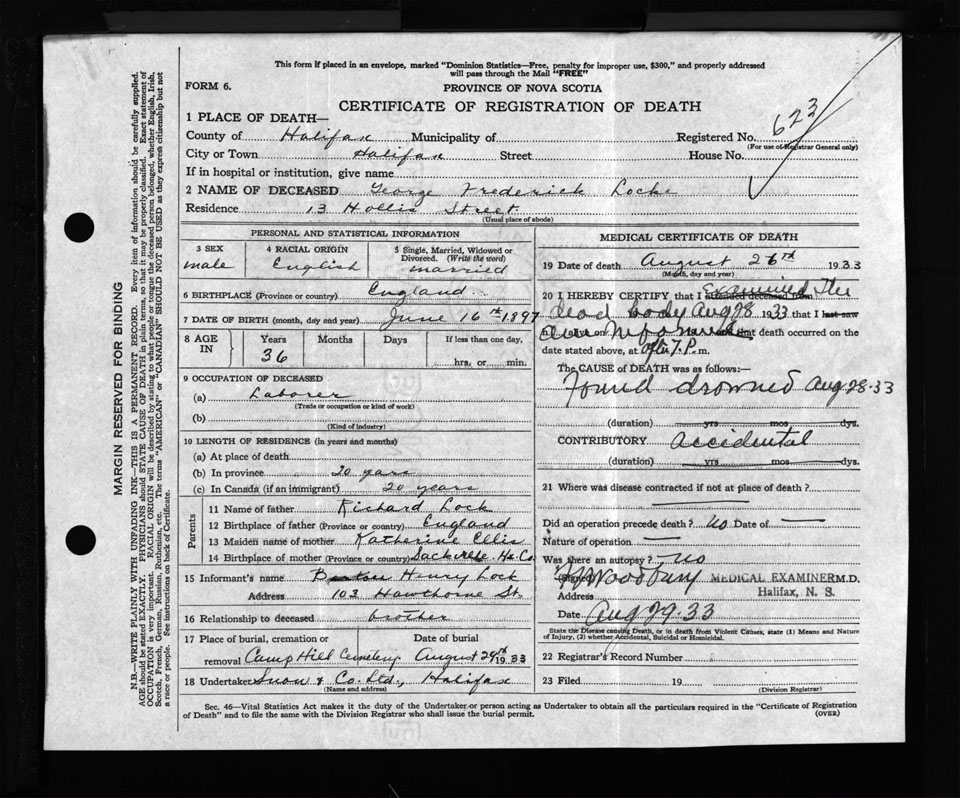 This form if placed in an envelope, marked "Dominion Statistics—Free, penalty for improper use, $300," and properly addressed
will pass through the Mail "FREE"
FORM 6.
PROVINCE OF NOVA SCOTIA
CERTIFICATE OF REGISTRATION OF DEATH
623
1 PLACE OF DEATH—
County of Halifax Municipality of Registered No.
(For use of Registrar General only)
City or Town Halifax Street House No.
If in hospital or institution, give name
2 NAME OF DECEASED George Frederick Locke
Residence 13 Hollis Street
(Usual place of abode)
PERSONAL AND STATISTICAL INFORMATION
3 SEX 4 RACIAL ORIGIN 5 Single, Married, Widowed or
Divorced. (Write the word)
male English married
6 BIRTHPLACE (Province or country) England
7 DATE OF BIRTH (month, day and year) June 16th 1897
8 AGE IN Years Months Days If less than one day,
36 hrs. or min.
9 OCCUPATION OF DECEASED
(a) Laborer
(Trade or occupation or kind of work)
(b)
(Kind of industry)
10 LENGTH OF RESIDENCE (in years and months)
(a) At place of death
(b) In province 20 years
(c) In Canada (if an immigrant) 20 years
Parents
11 Name of father Richard Lock
12 Birthplace of father (Province or country) England
13 Maiden name of mother Katherine Ellis
14 Birthplace of mother (Province or country) Sackville Hx. Co.
15 Informant's name Henry Lock
Address 103 Hawthorne St.
16 Relationship to deceased brother
17 Place of burial, cremation or Date of burial
removal Camp Hill Cemetery August 29th 1933
18 Undertaker Snow & Co. Ltd., Halifax
(Name and address)
MEDICAL CERTIFICATE OF DEATH
19 Date of death August 26th 1933
(Month, day and year)
20 I HEREBY CERTIFY that I attended deceased from examined the
dead body Aug 28 1933 that I last saw
that death occurred on the
date stated above, at after 7. P. m.
The CAUSE of DEATH was as follows:—
Found drowned Aug 28-33
(duration) yrs mos dys.
CONTRIBUTORY Accidental
(duration) yrs mos dys.
21 Where was disease contracted if not at place of death?
Did an operation precede death? No Date of —
Nature of operation —
Was there an autopsy? No
MEDICAL EXAMINER M.D.
Address Halifax, N. S.
Date Aug 29-33
State the Disease causing Death, or in death from Violent Causes, state (1) Means and Nature
of Injury, (2) whether Accidental, Suicidal or Homicidal.
22 Registrar's Record Number
23 Filed 19
(Division Registrar)
Sec. 46—Vital Statistics Act makes it the duty of the Undertaker or person acting as Undertaker to obtain all the particulars required in the "Certificate of Registration
of Death" and to file the same with the Division Registrar who shall issue the burial permit.
(OVER)
MARGIN RESERVED FOR BINDING
N.B.—WRITE PLAINLY WITH UNFADING INK—THIS IS A PERMANENT RECORD. Every item of information should be carefully supplied.
AGE should be stated EXACTLY. PHYSICIANS should STATE CAUSE OF DEATH in plain terms, so that it may be properly classified. Exact statement of
OCCUPATION is very important. RACIAL ORIGIN will be described by stating to what people or tongue the deceased person belonged, whether English, Irish,
Scotch, French, German, Russian, Ruthenian, etc. The terms "AMERICAN" or "CANADIAN" SHOULD NOT BE USED as they express citizenship but not
a race or people. See instructions on back of Certificate.